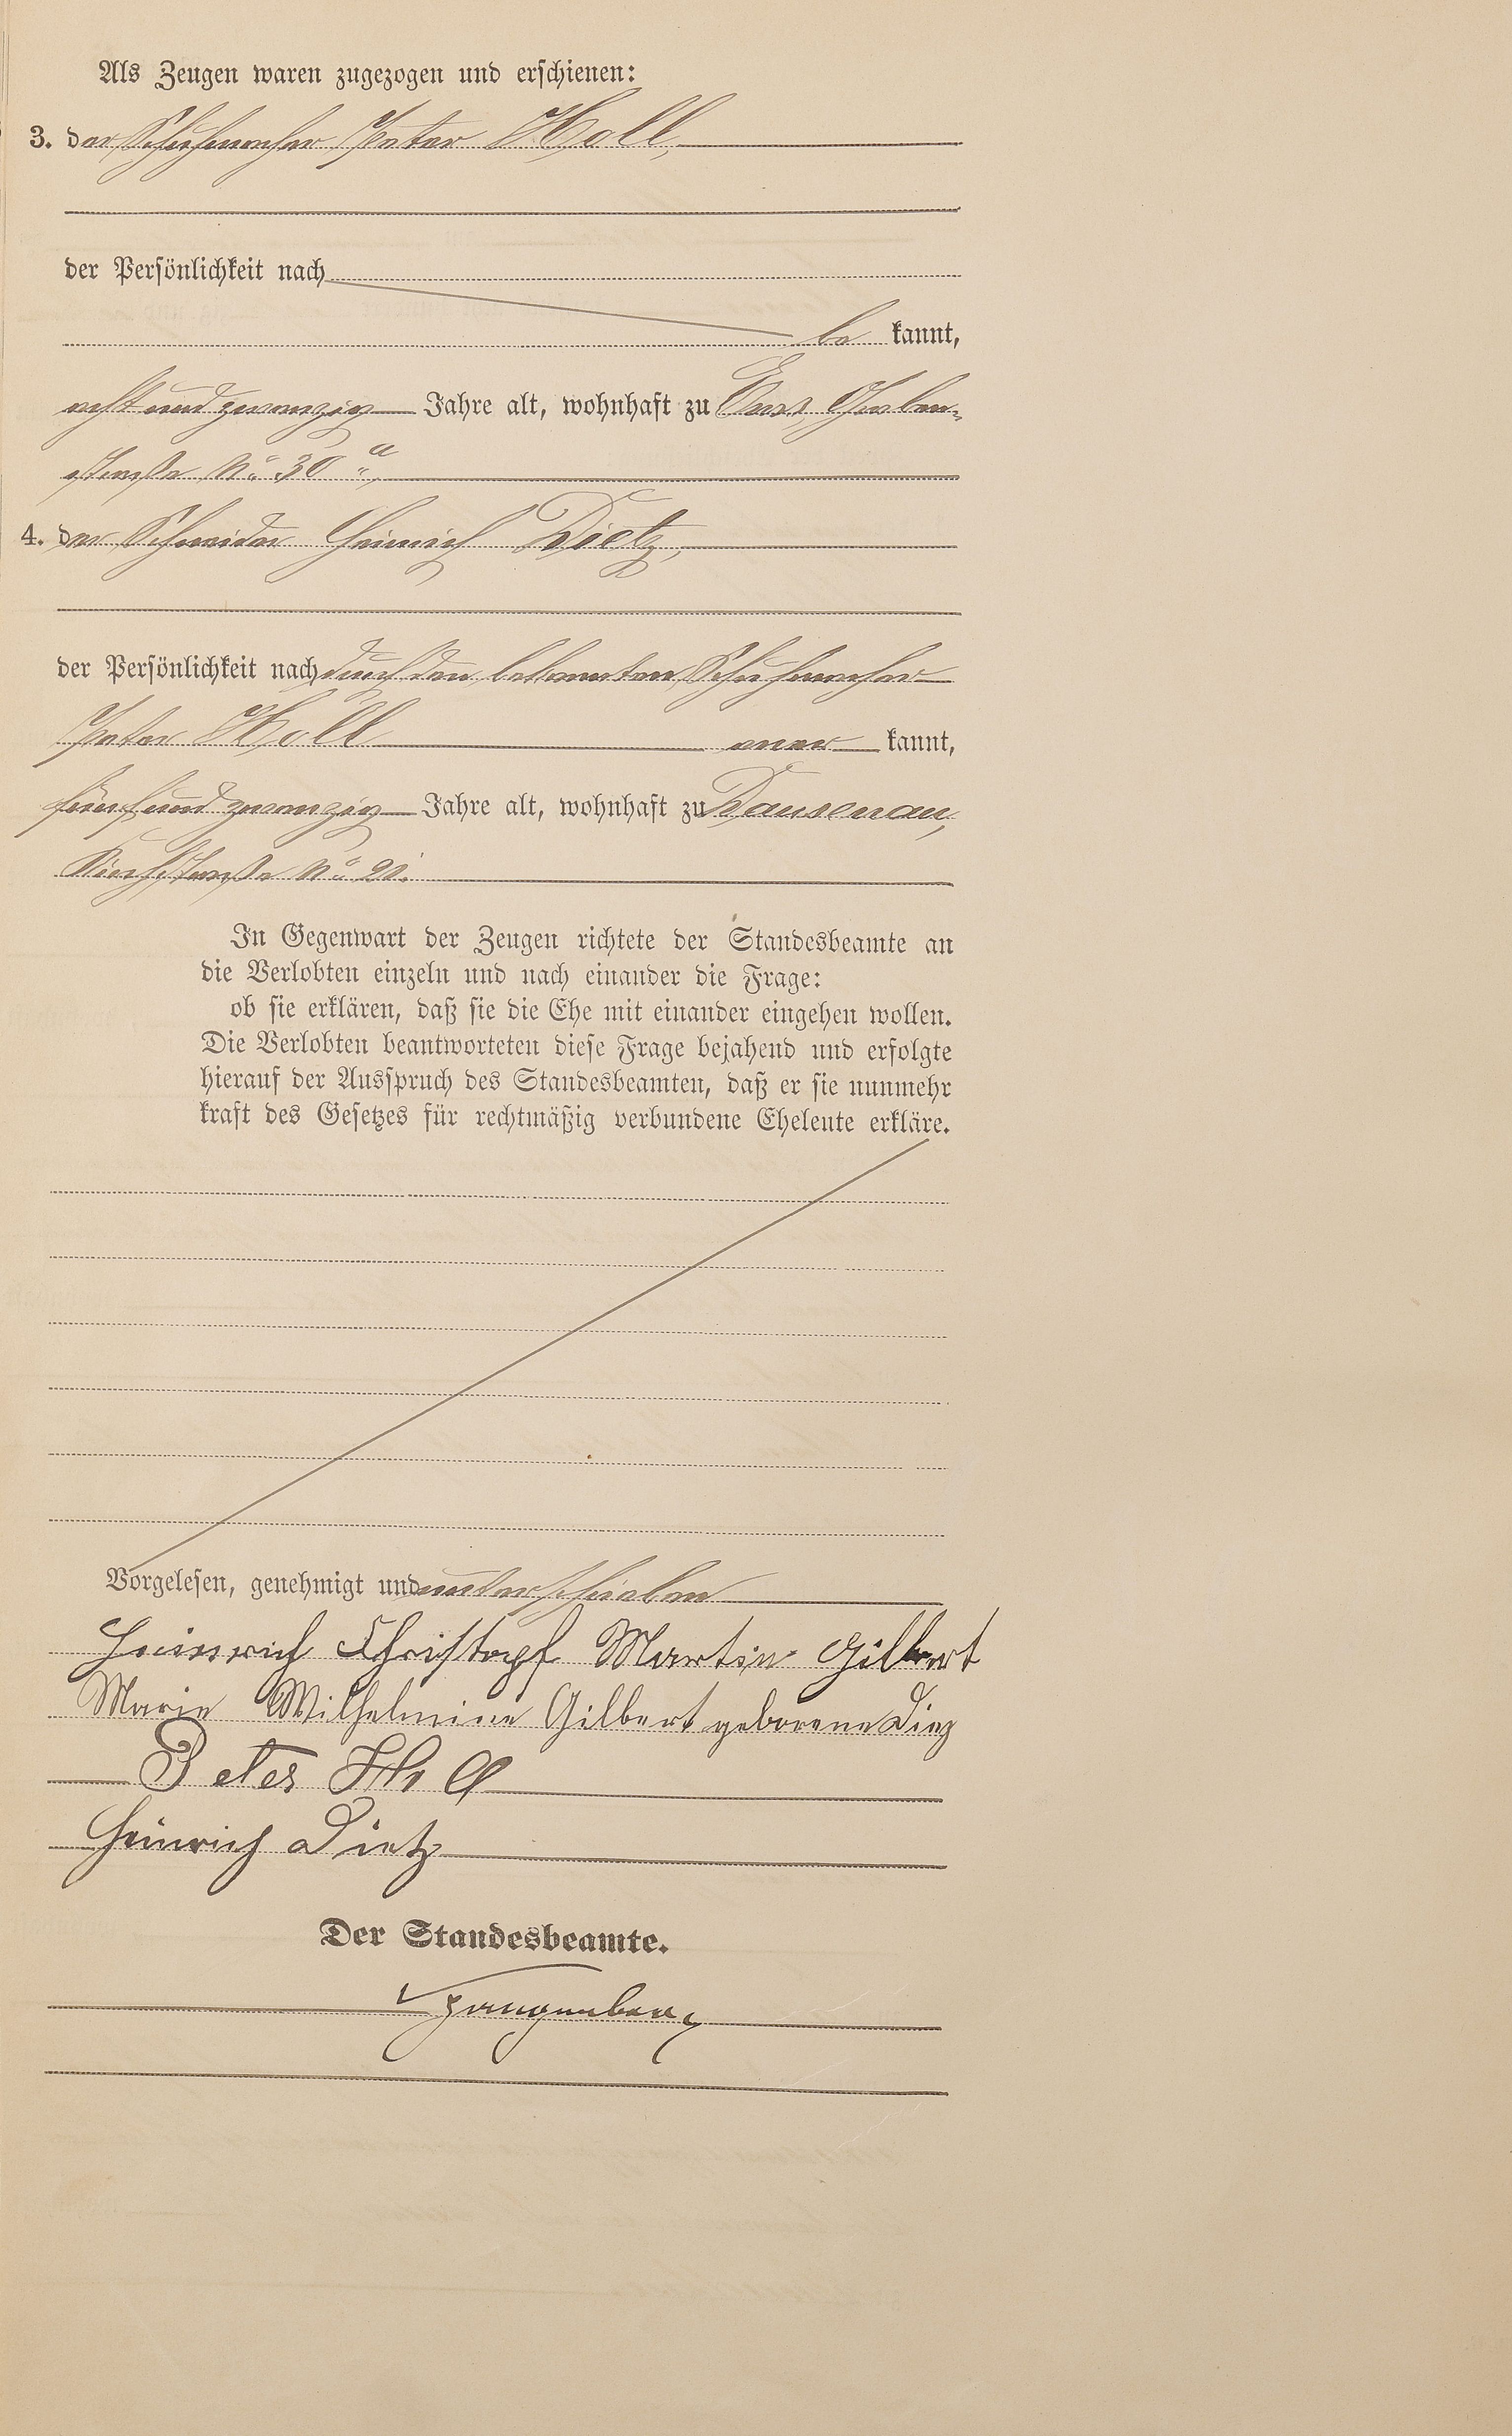 Als Zeugen waren zugezogen und erschienen:
3. der Schuhmacher Peter Holl,
der Persönlichkeit nach
be kannt,
acht und zwanzig Jahre alt, wohnhaft zu Ems, Graben-
straße No 30 a,
4. der Schneider Heinrich Dietz,
der Persönlichkeit nach durch den bekannten Schuhmacher
Peter Holl aner kannt,
fünf und zwanzig Jahre alt, wohnhaft zu Dausenau,
Kirchstraße No 21.
In Gegenwart der Zeugen richtete der Standesbeamte an
die Verlobten einzeln und nach einander die Frage:
ob sie erklären, daß sie die Ehe mit einander eingehen wollen.
Die Verlobten beantworteten diese Frage bejahend und erfolgte
hierauf der Ausspruch des Standesbeamten, daß er sie nunmehr
kraft des Gesetzes für rechtmäßig verbundene Eheleute erkläre.
Vorgelesen, genehmigt und unterschrieben
Heinrich Christoph Martin Gilbert
Marie Wilhelmine Gilbert geborene Diez
Peter Holl
Heinrich Dietz
Der Standesbeamte.
Spangenberg